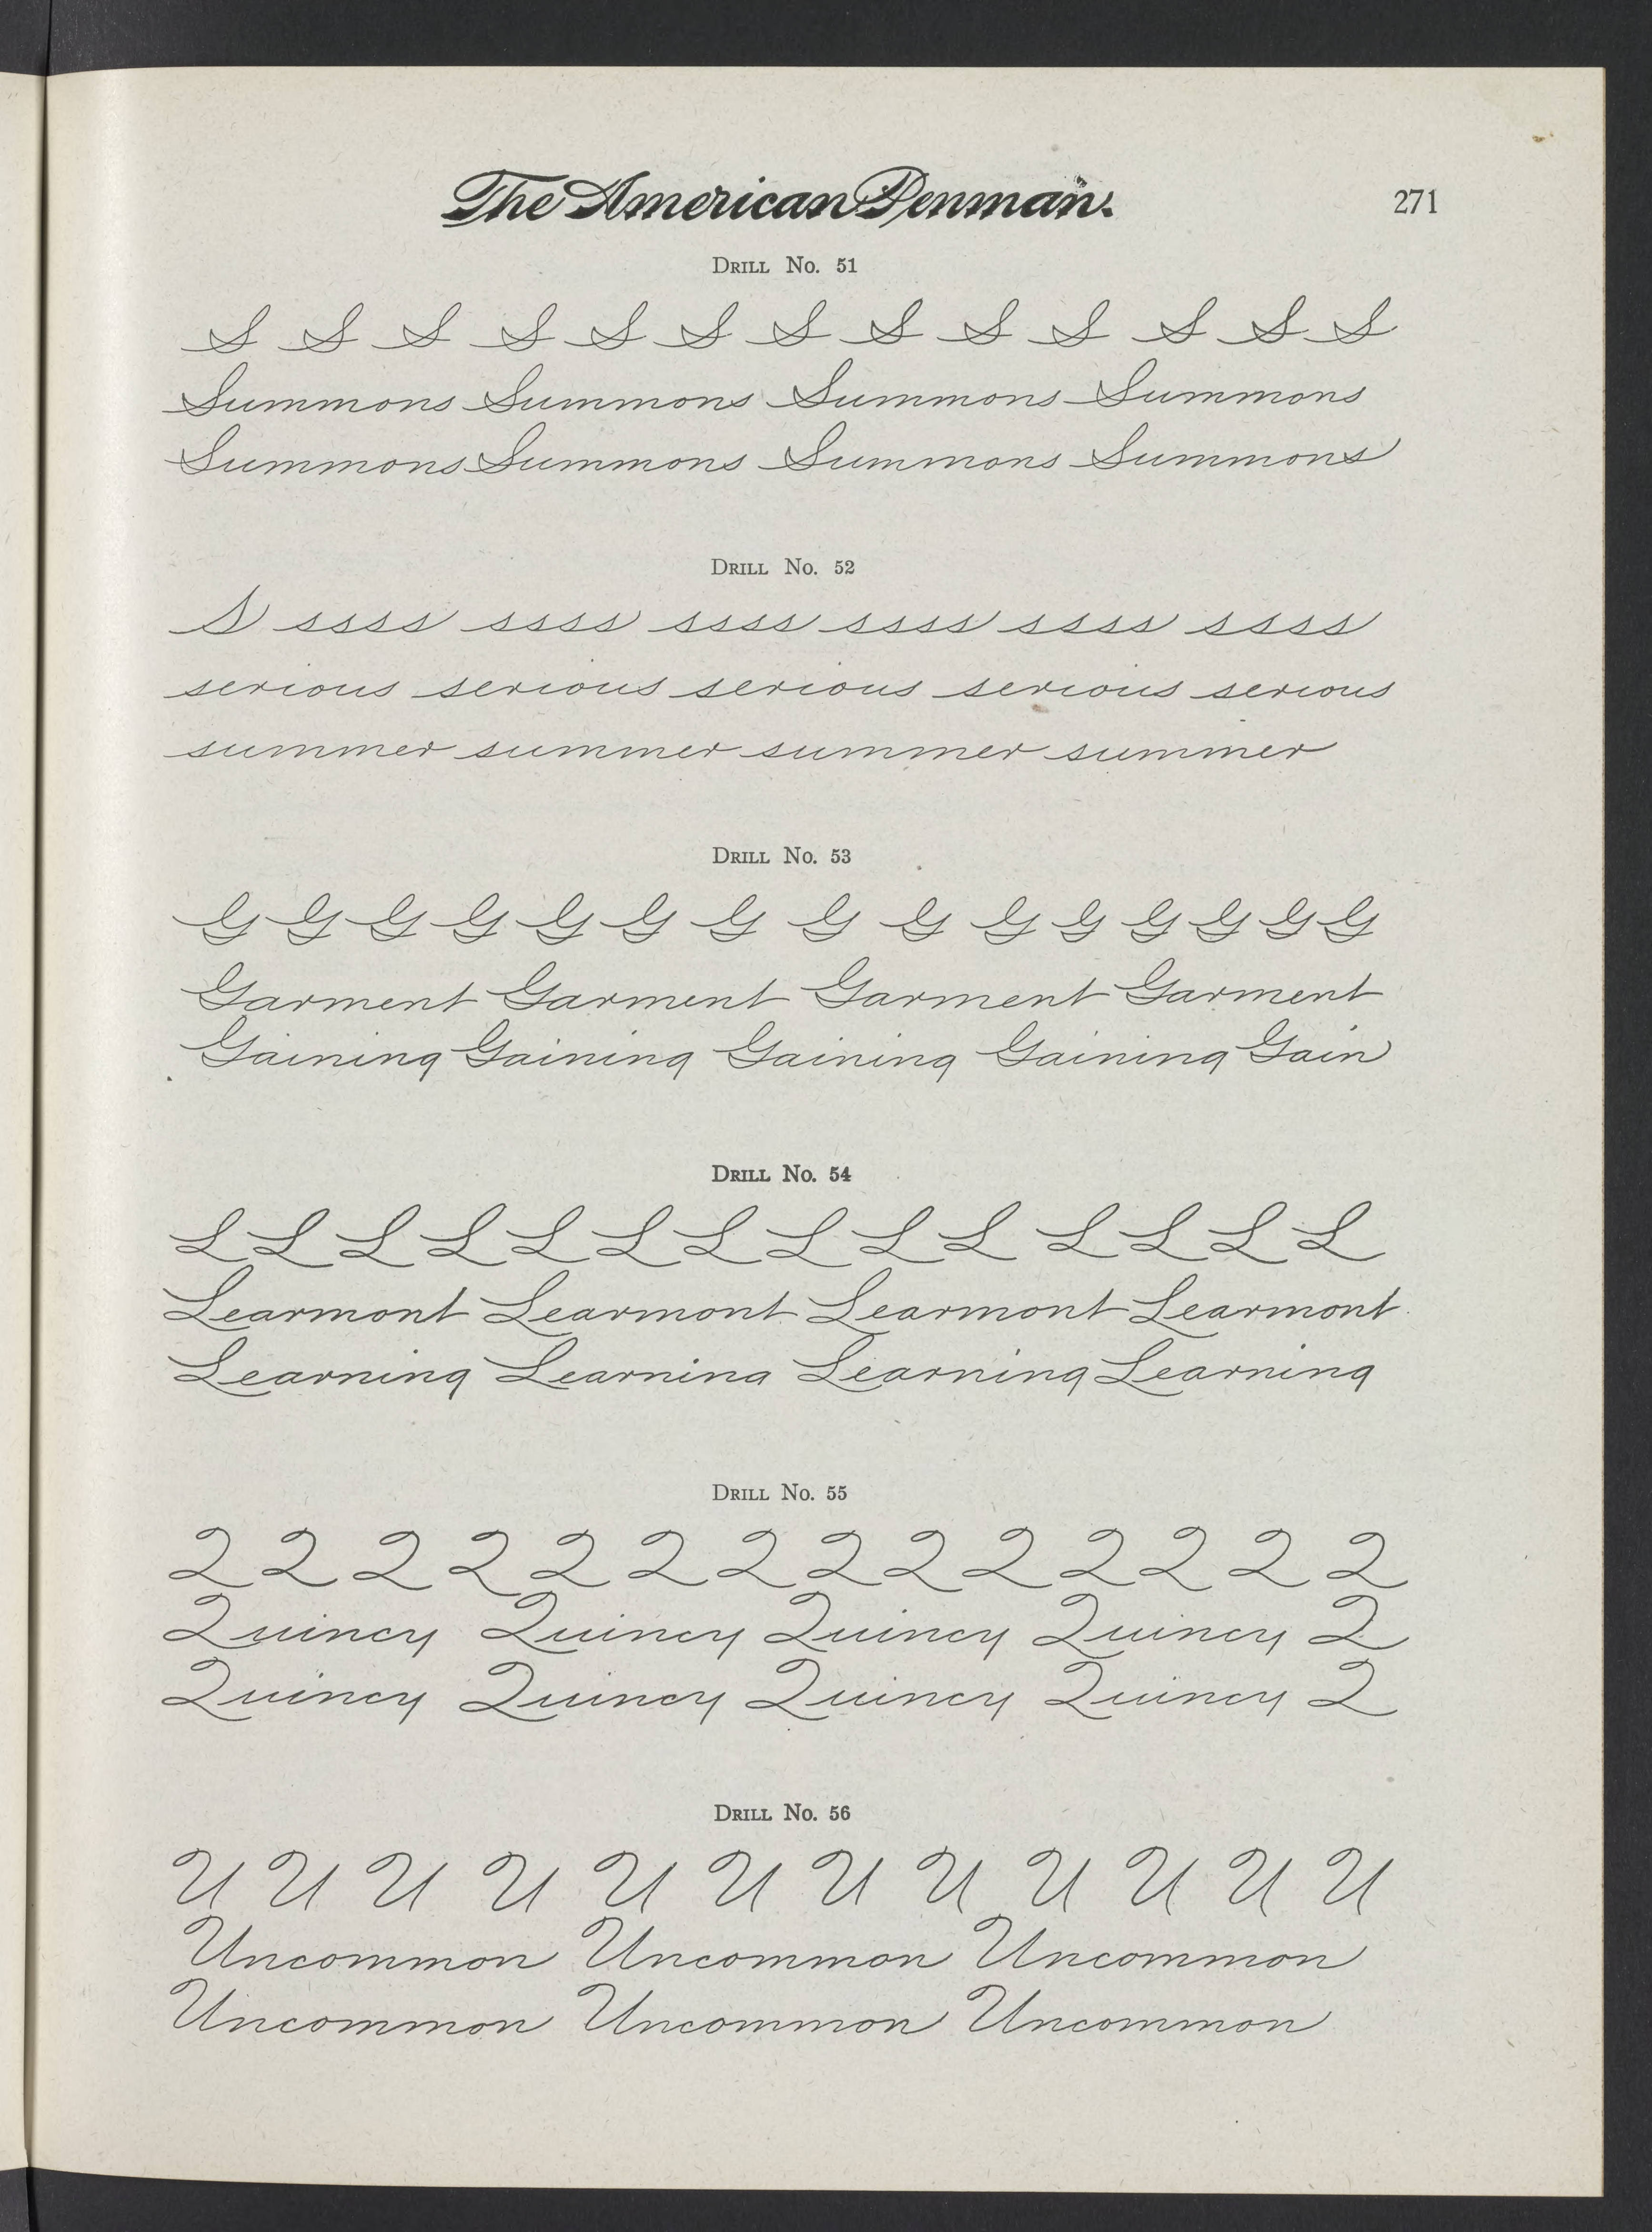 The American Penman.
271
DRILL No. 51
S S S S S S S S S S S S S
Summons Summons Summons Summons
Summons Summons Summons Summons
DRILL No. 52
S ssss ssss ssss ssss ssss ssss
serious serious serious serious serious
summer summer summer summer
DRILL No. 53
G G G G G G G G G G G G G G G
Garment Garment Garment Garment
Gaining Gaining Gaining Gaining Gain
DRILL No. 54
L L L L L L L L L L L L L L
Learmont Learmont Learmont Learmont
Learning Learning Learning Learning
DRILL No. 55
Q Q Q Q Q Q Q Q Q Q Q Q Q Q
Quincy Quincy Quincy Quincy Q
Quincy Quincy Quincy Quincy Q
DRILL No. 56
U U U U U U U U U U U U
Uncommon Uncommon Uncommon
Uncommon Uncommon Uncommon